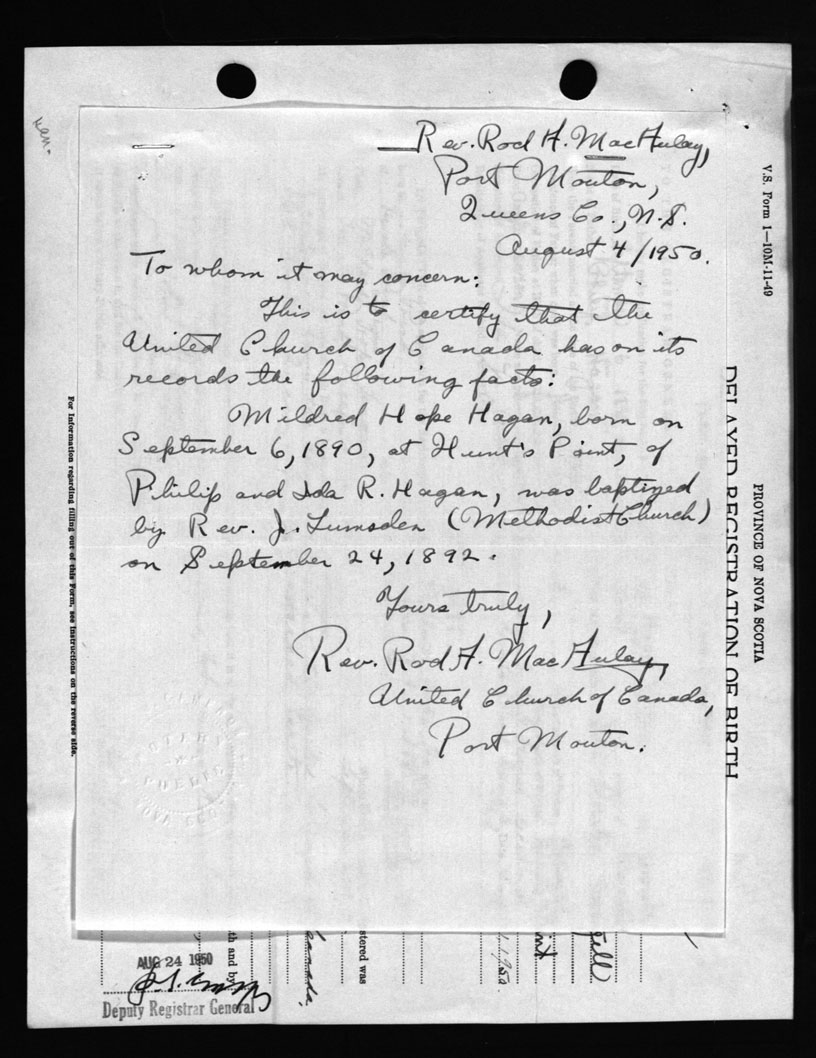 Rev. Rod A. MacAulay,
Port Mouton,
Queens Co., N.S.
August 4/1950.
To whom it may concern:
This is to certify that the
United Church of Canada has on its
records the following facts:
Mildred Hope Hagan, born on
September 6, 1890, at Hunt's Point, of
Philip and Ida R. Hagan, was baptized
by Rev. J. Lumsden (Methodist Church)
on September 24, 1892.
Yours truly,
Rev. Rod A. MacAulay,
United Church of Canada,
Port Mouton.
V.S. Form 1—10M-11-49
PROVINCE OF NOVA SCOTIA
DELAYED REGISTRATION OF BIRTH
For Information regarding filling out of this Form, see Instructions on the reverse side.
NOTARY
PUBLIC
NOVA SCOTIA
th and by
stered was
Canada,
1950
int
fell
AUG 24 1950
Deputy Registrar General